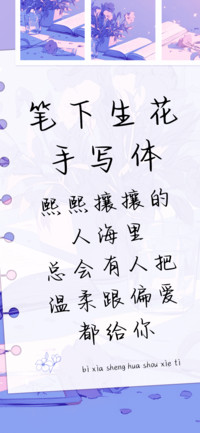 笔下生花
手写体
熙熙攘攘的
人海里
总会有人把
温柔跟偏爱
都给你
bi xia sheng hua shou xie ti